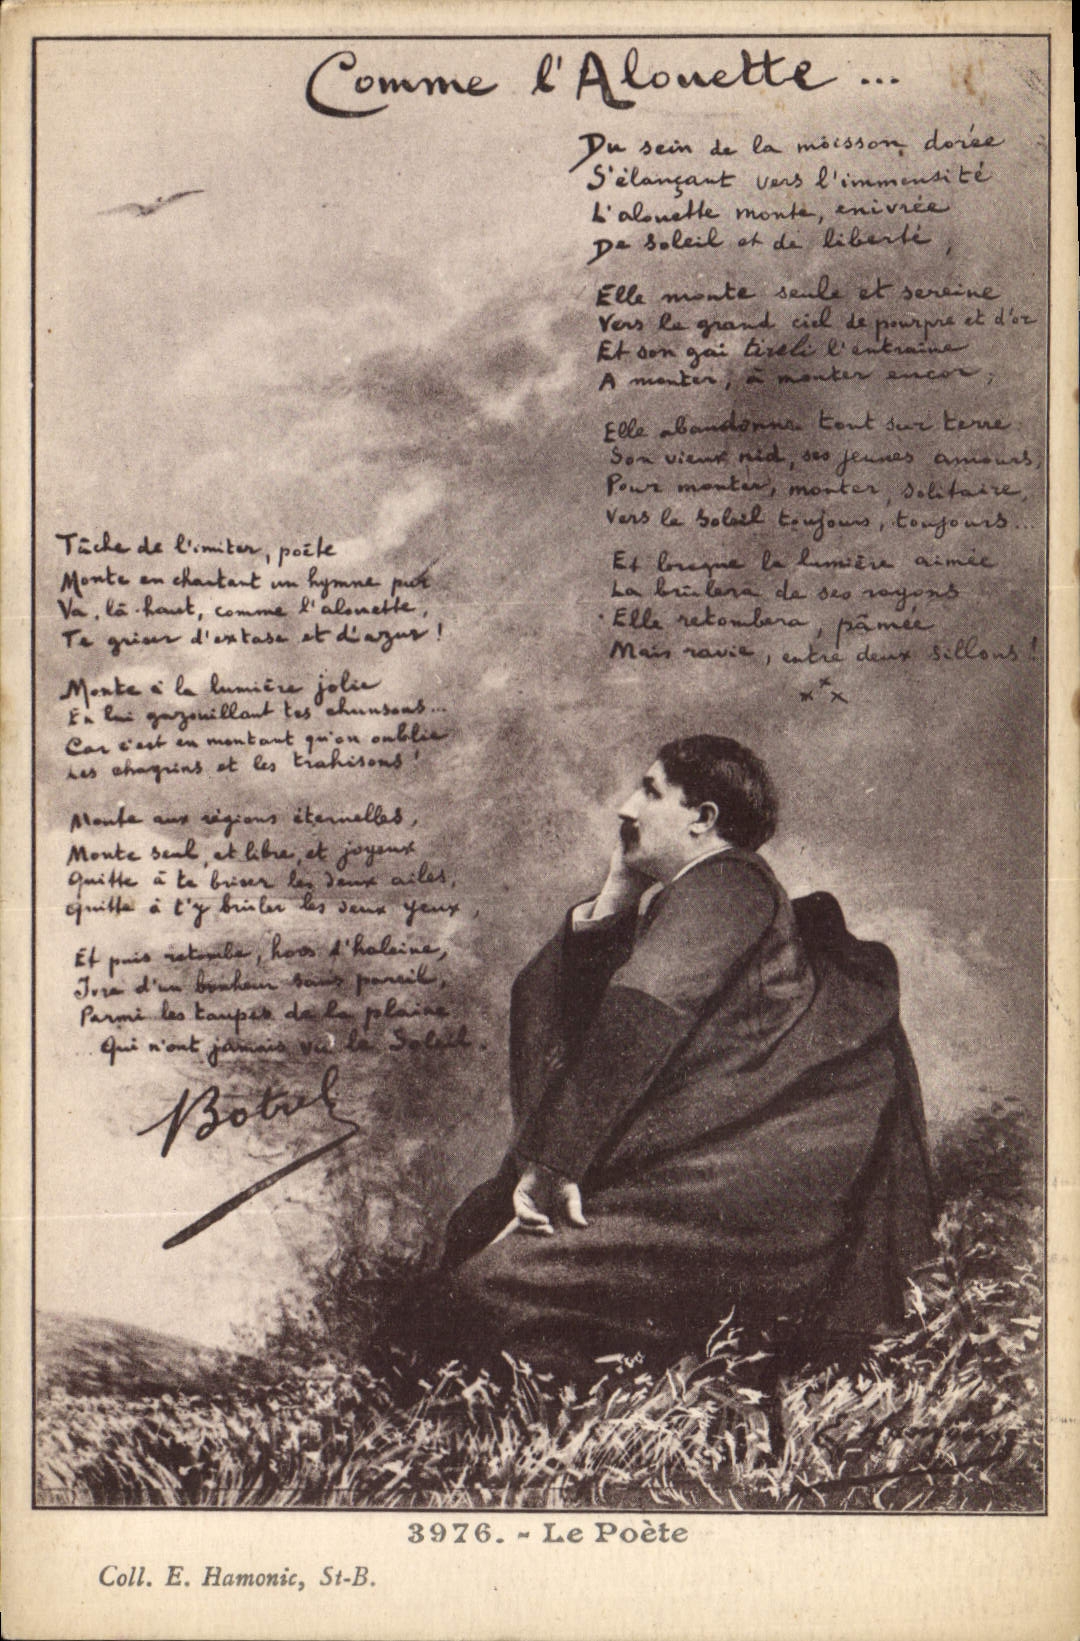 Comme l'Alouette ...
Du sein de la moisson dorée
S'élançant vers l'immensité
L'alouette monte, enivrée
De soleil et de liberté,
Elle monte seule et sereine
Vers le grand ciel de pourpre et d'or
Et son gai tireli l'entraine
A monter, à monter encor,
Elle abandonne tout sur terre
Son vieux nid, ses jeunes amours,
Pour monter, monter, solitaire,
Vers le Soleil toujours, toujours...
Et lorsque la lumière aimée
La brûlera de ses rayons
Elle retombera, pâmée
Mais ravie, entre deux sillons!
Tâche de l'imiter, poète
Monte en chantant un hymne pur
Va, là-haut, comme l'alouette,
Te griser d'extase et d'azur!
Monte à la lumière jolie
En lui gazouillant tes chansons...
Car c'est en montant qu'on oublie
Les chagrins et les trahisons!
Monte aux régions éternelles,
Monte seul, et libre, et joyeux
Quitte à te briser les deux ailes,
Quitte à t'y brûler les deux yeux,
Et puis retombe, hors d'haleine,
Ivre d'un bonheur sans pareil,
Parmi les taupes de la plaine
Qui n'ont jamais vu le Soleil.
Botrel
3976. - Le Poète
Coll. E. Hamonic, St-B.